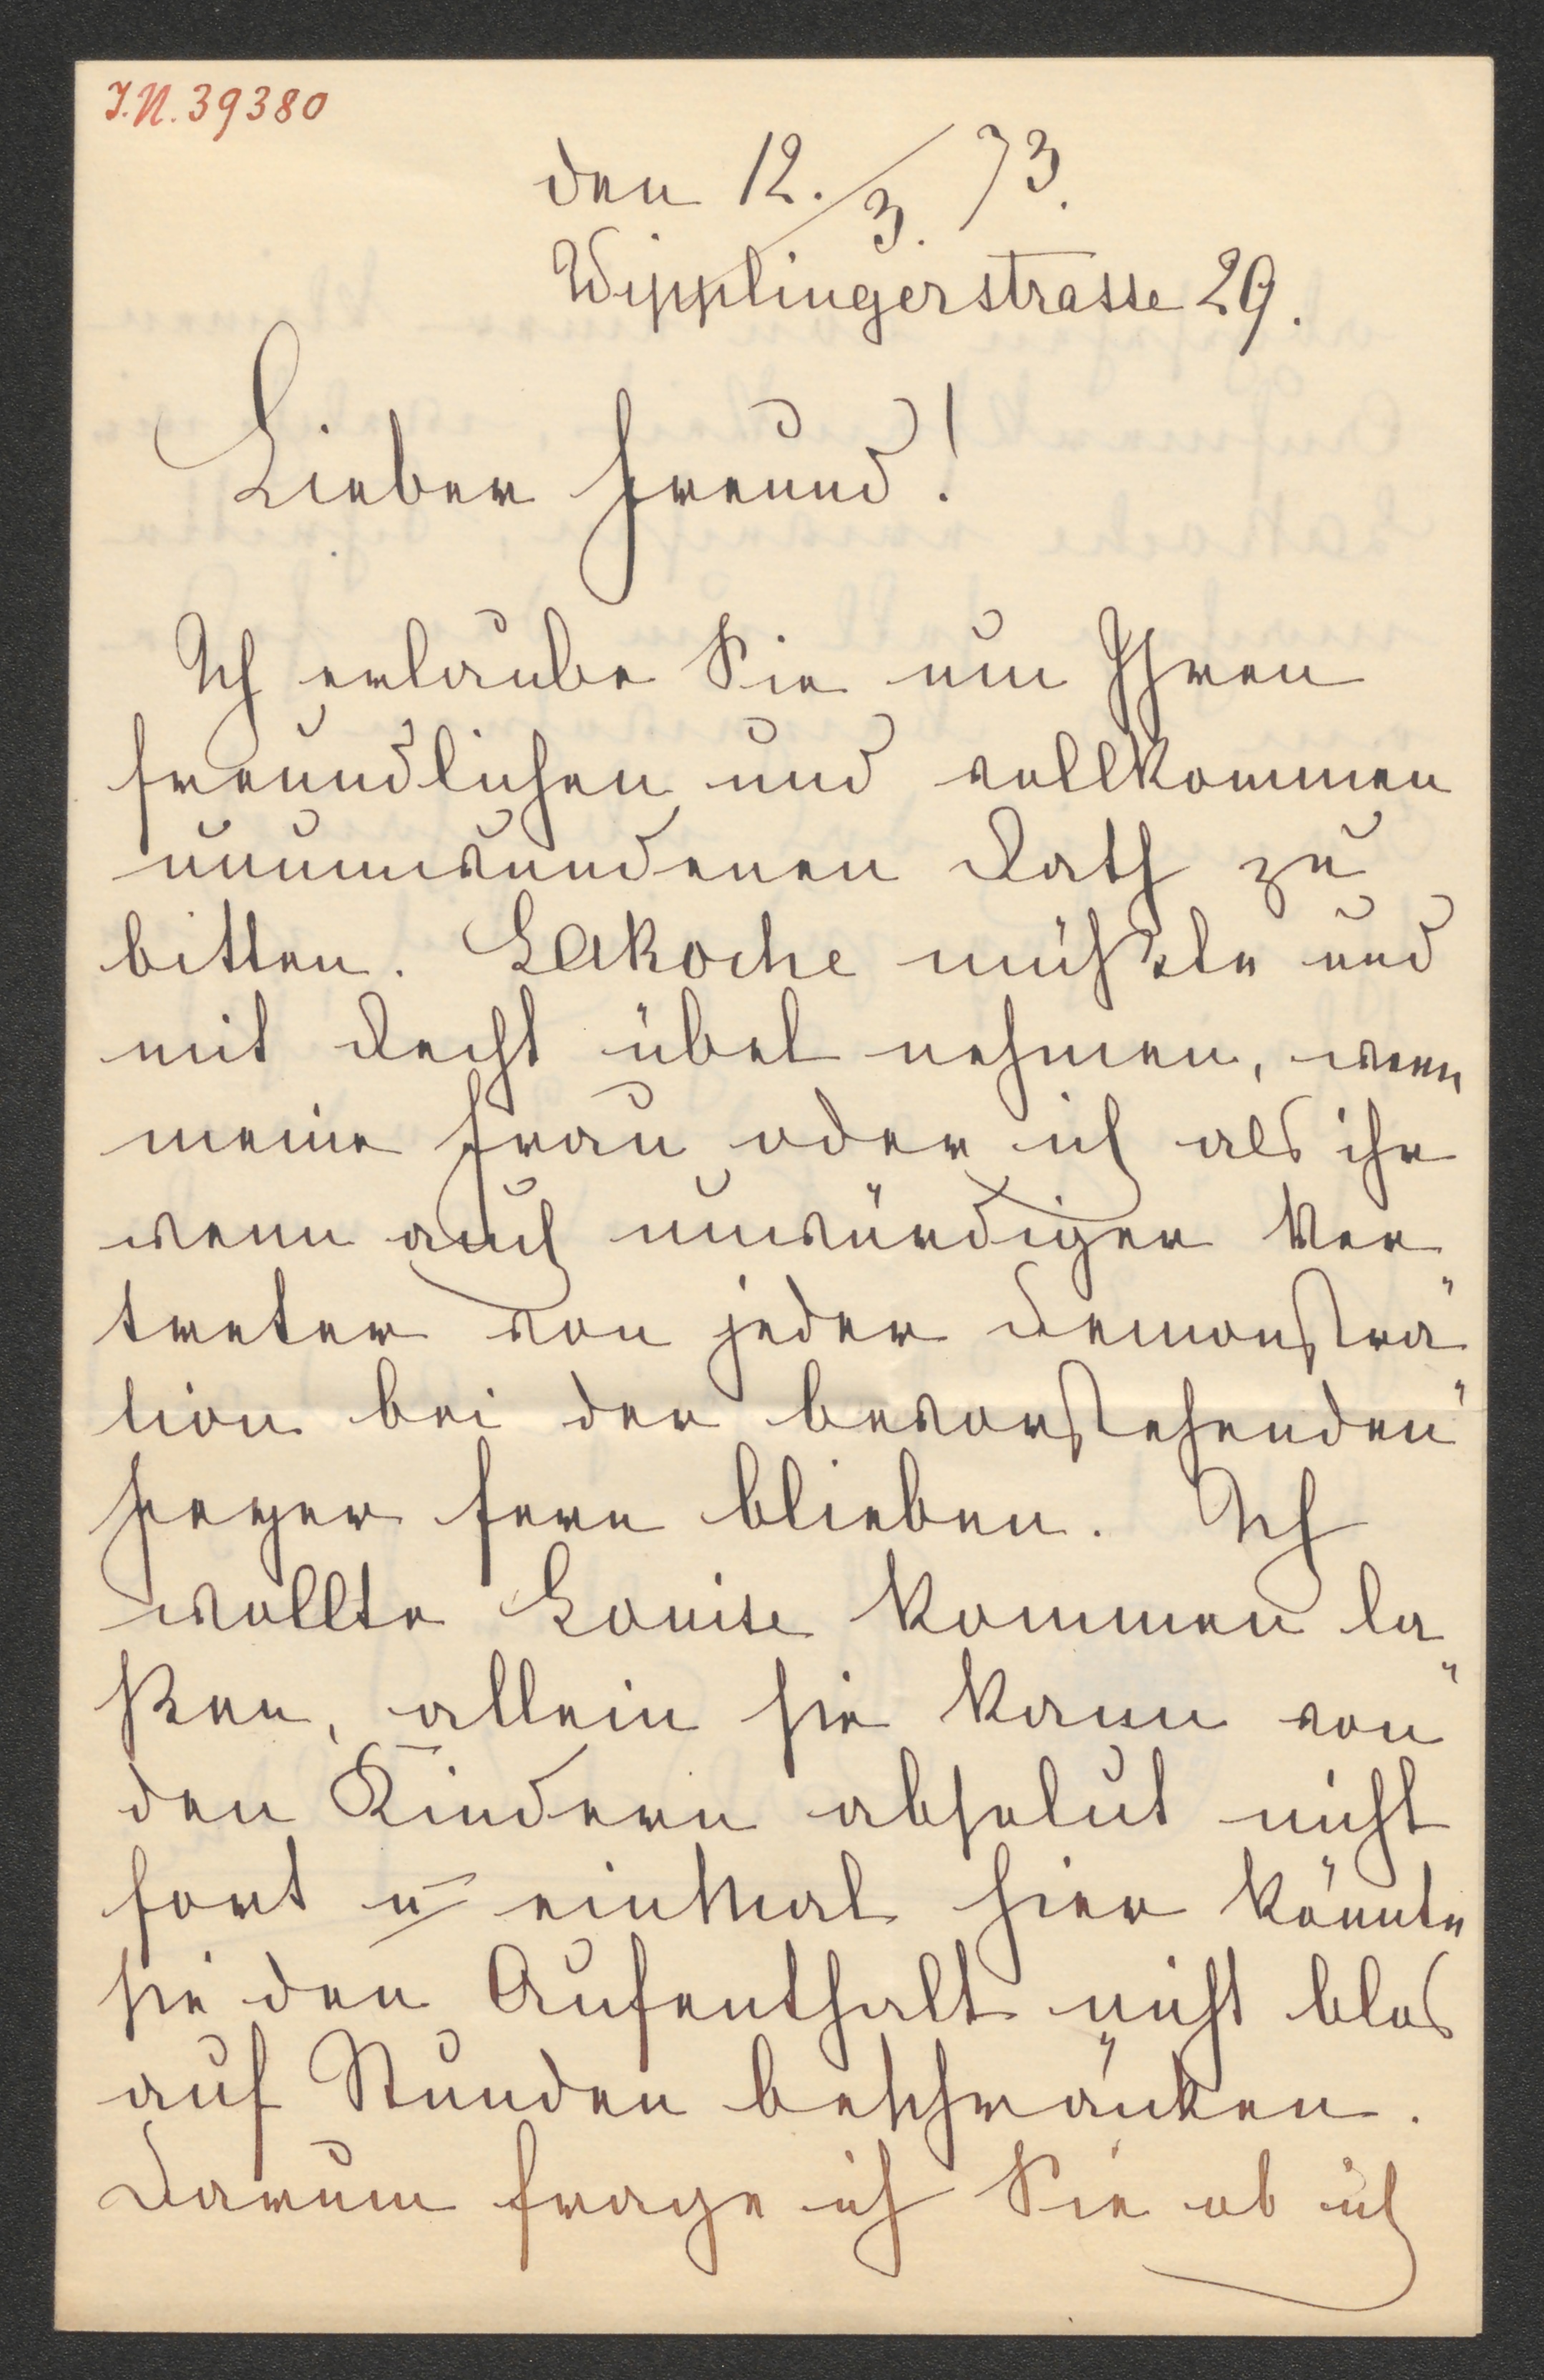 I.N. 39380
den 12./3. 73.
Wipplingerstrasse 29.
Lieber Freund!
Ich erlaube Sie um Ihren
freundlichen und vollkommen
unumwundenen Rath zu
bitten. LaRoche müßte und
mit Recht übel nehmen, wenn
meine Frau oder ich als ihr
wenn auch unwürdiger Ver
treter von jeder Demonstra"
tion bei der bevorstehenden"
Feyer fern blieben. Ich
wollte Louise kommen la"
ßen, allein sie kann von
den Kindern absolut nicht
fort u einmal hier könnte
sie den Aufenthalt nicht blos
auf Stunden beschränken.
Darum frage ich Sie ob ich